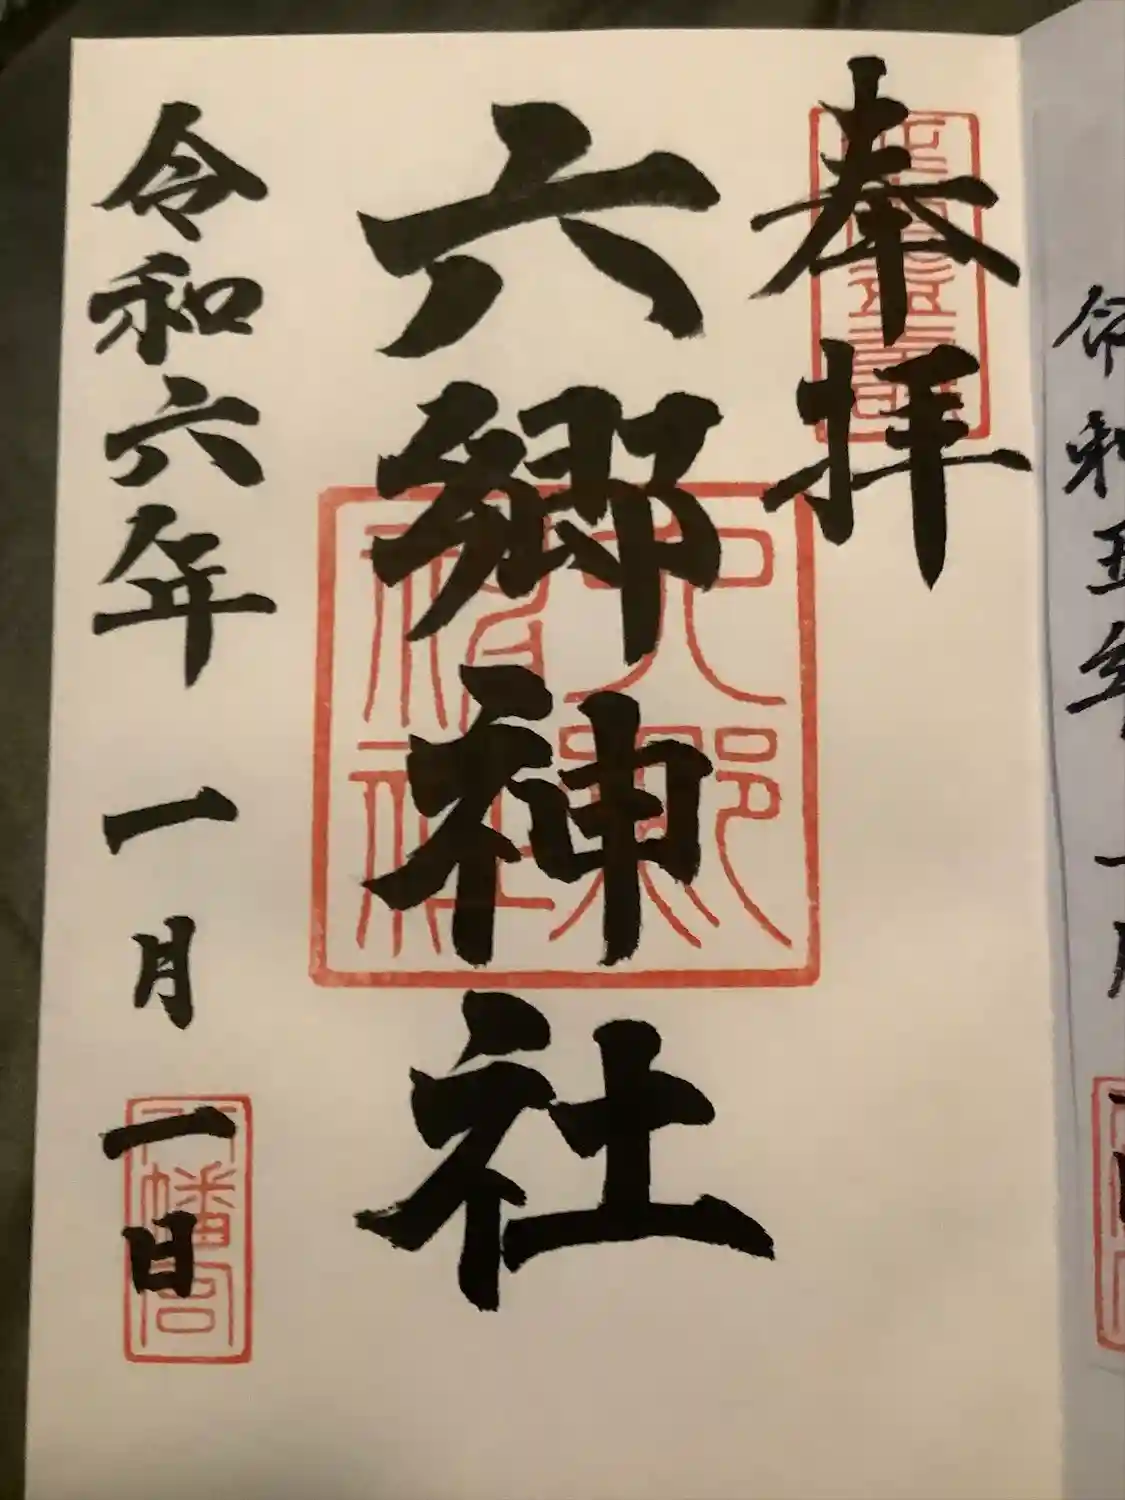 奉拝
六郷神社
六郷神社
令和六年 一月 一日
八幡宮
令和五年 一月